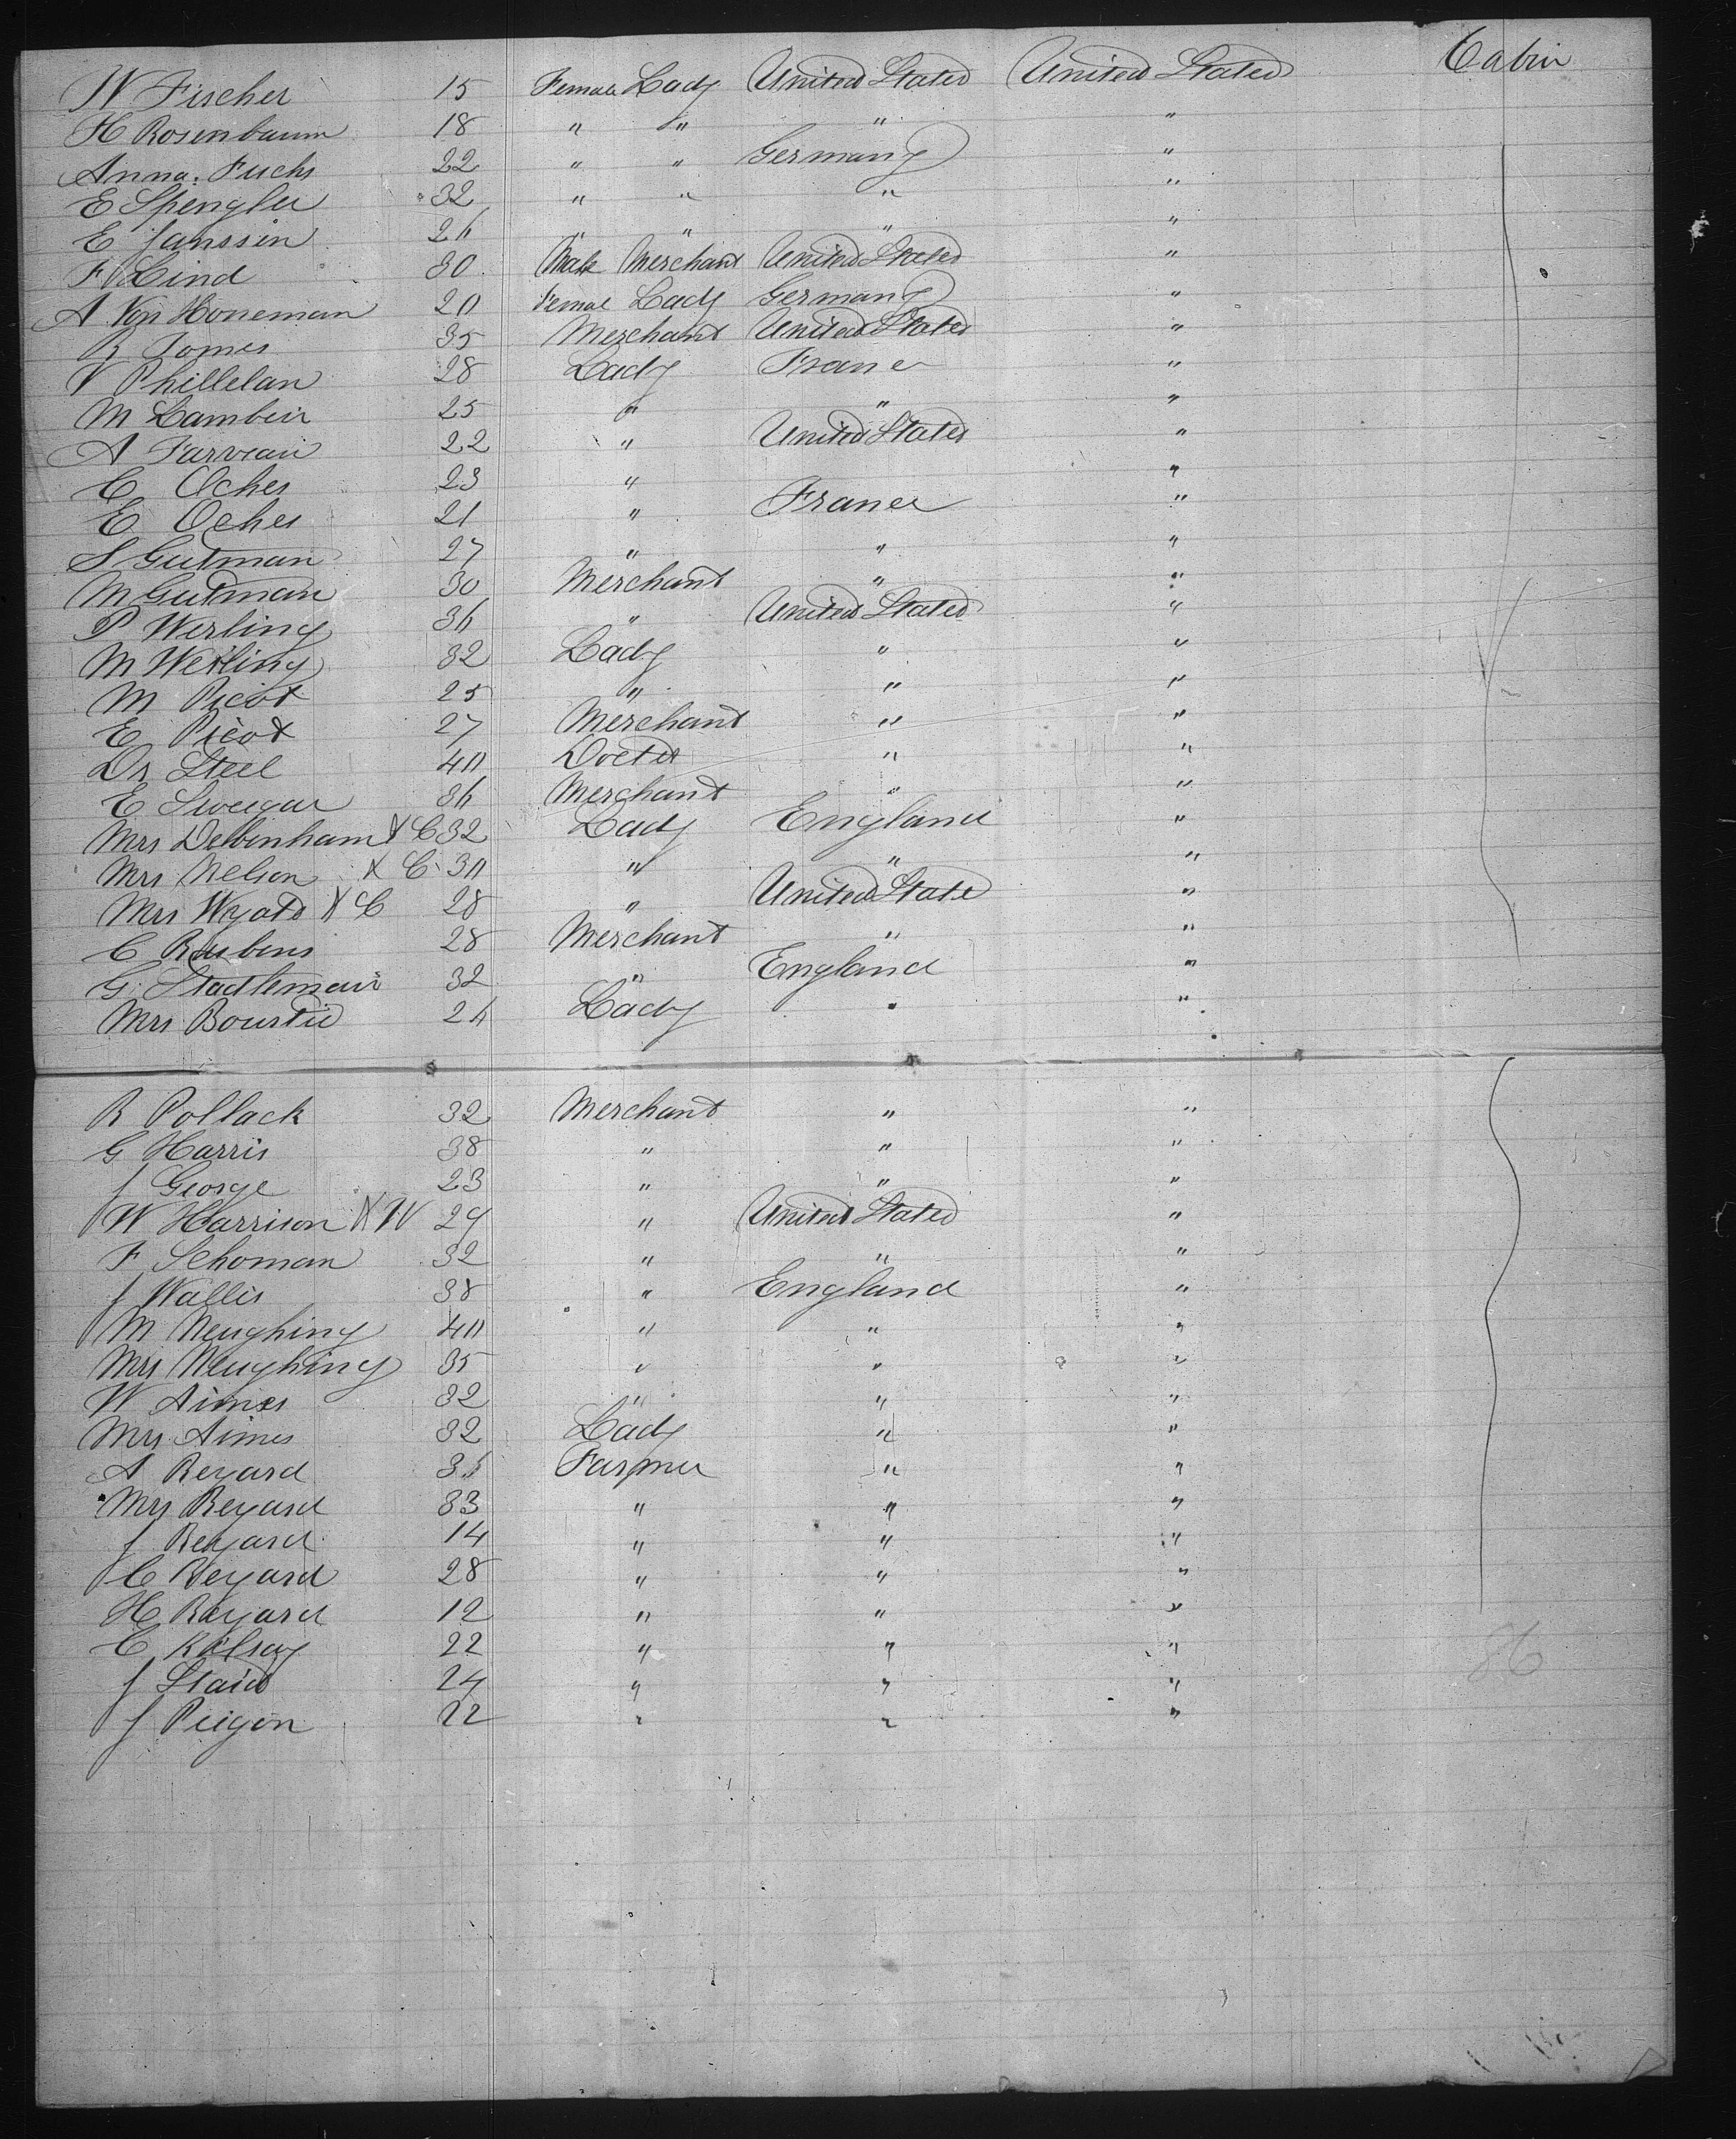 W Fischer 15 Female Lady United States United States Cabin
H Rosenbaum 18 " " " "
Anna Fuchs 22 " " Germany "
E Spengler 32 " " " "
E Janssen 24 " " " "
F Lind 30 Male Merchant United States "
A Von Honeman 20 Femal Lady Germany "
R Tomes 35 Merchant United States "
V Phillelan 28 Lady France "
M Lambeir 25 " " "
A Tarvean 22 " United States "
C Oches 23 " "
E Oches 21 " France "
S Gutman 27 " " "
M Gutman 30 Merchant " "
P Werling 36 " United States "
M Werling 32 Lady " "
M Picot 25 " " "
E Picot 27 Merchant " "
Dr Steel 40 Docter " "
E Sweigar 36 Merchant " "
Mrs Debbinham X C 32 Lady England "
Mrs Nelson X C 30 " " "
Mrs Wyatt X C 28 " United State "
C Rubens 28 Merchant " "
G. Stadlemair 32 " England "
Mrs Bourtie 24 Lady " "
R Pollack 32 Merchant " "
G Harris 38 " " "
J George 23 " " "
W Harrison X W 29 " United States "
F Schoman 32 " " "
J Wallis 38 " England "
M Neughing 40 " " "
Mrs Neughing 35 " " "
W Aimes 32 " " "
Mrs Aimes 32 Lady " "
A Reyard 35 Farmer " "
Mrs Reyard 33 " " "
J Reyard 14 " " "
C Reyard 28 " " "
H Reyard 12 " " "
C Kelsay 22 " " "
J Staid 24 " " "
J Peigon 22 " " "
86